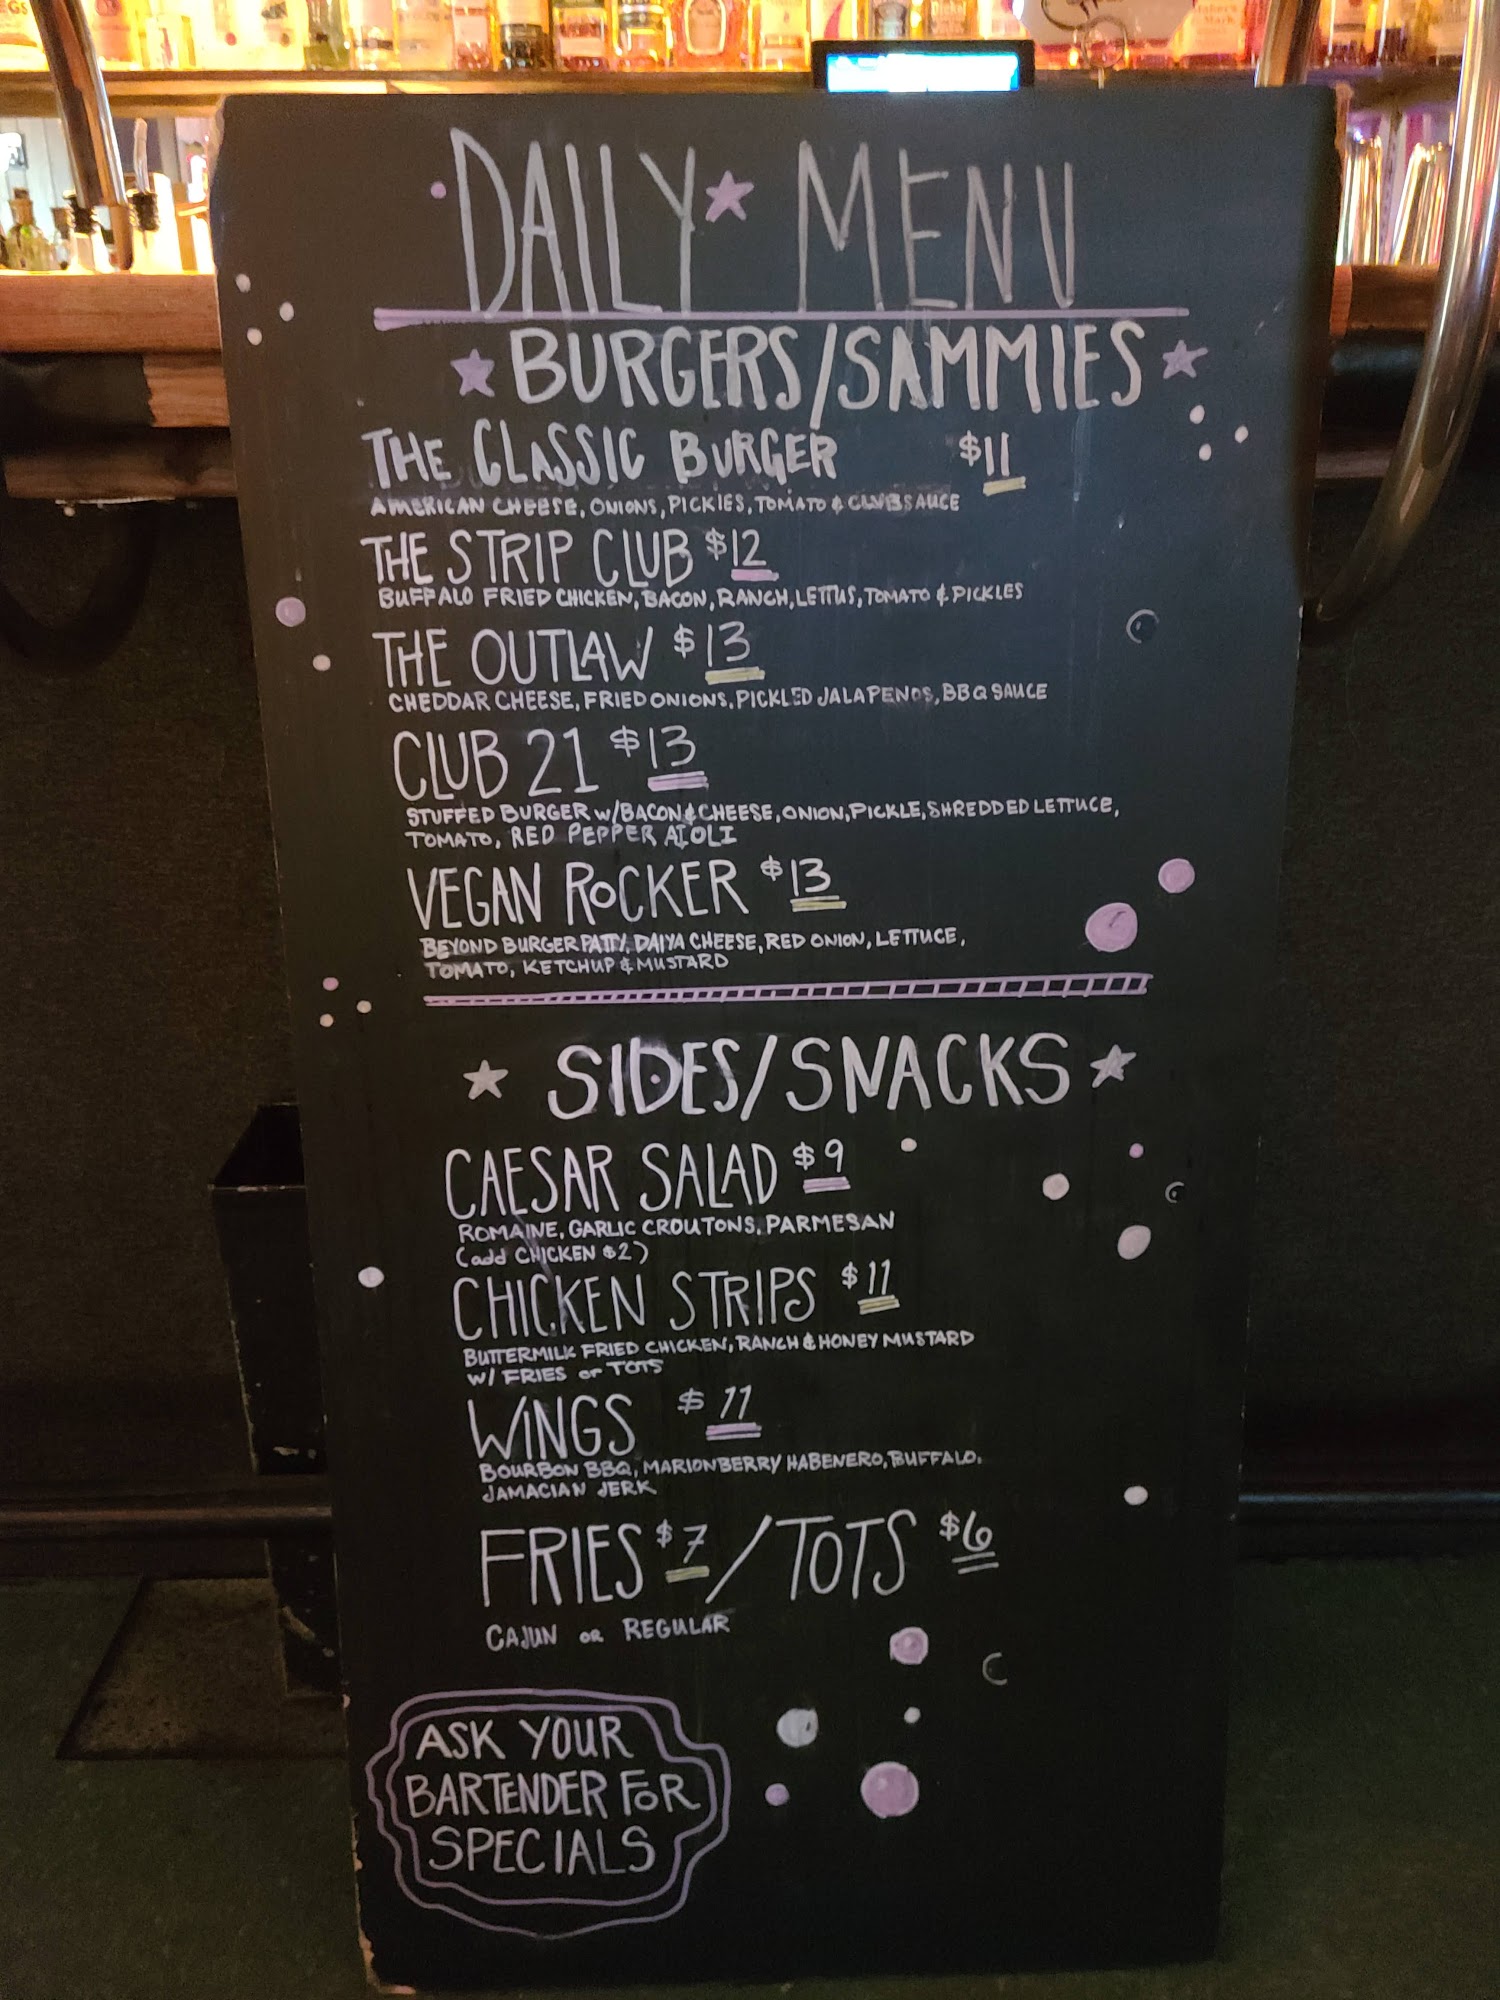 DAILY MENU
BURGERS/SAMMIES
THE CLASSIC BURGER $11
AMERICAN CHEESE, ONIONS, PICKLES, TOMATO & CLUB SAUCE
THE STRIP CLUB $12
BUFFALO FRIED CHICKEN, BACON, RANCH, LETTUS, TOMATO & PICKLES
THE OUTLAW $13
CHEDDAR CHEESE, FRIED ONIONS, PICKLED JALAPENOS, BBQ SAUCE
CLUB 21 $13
STUFFED BURGER W/BACON & CHEESE, ONION, PICKLE, SHREDDED LETTUCE,
TOMATO, RED PEPPER AIOLI
VEGAN ROCKER $13
BEYOND BURGER PATTY, DAIYA CHEESE, RED ONION, LETTUCE,
TOMATO, KETCHUP & MUSTARD
SIDES/SNACKS
CAESAR SALAD $9
ROMAINE, GARLIC CROUTONS, PARMESAN
(add CHICKEN $2)
CHICKEN STRIPS $11
BUTTERMILK FRIED CHICKEN, RANCH & HONEY MUSTARD
W/ FRIES or TOTS
WINGS $11
BOURBON BBQ, MARIONBERRY HABENERO, BUFFALO,
JAMACIAN JERK
FRIES $7 / TOTS $6
CAJUN OR REGULAR
ASK YOUR
BARTENDER FOR
SPECIALS